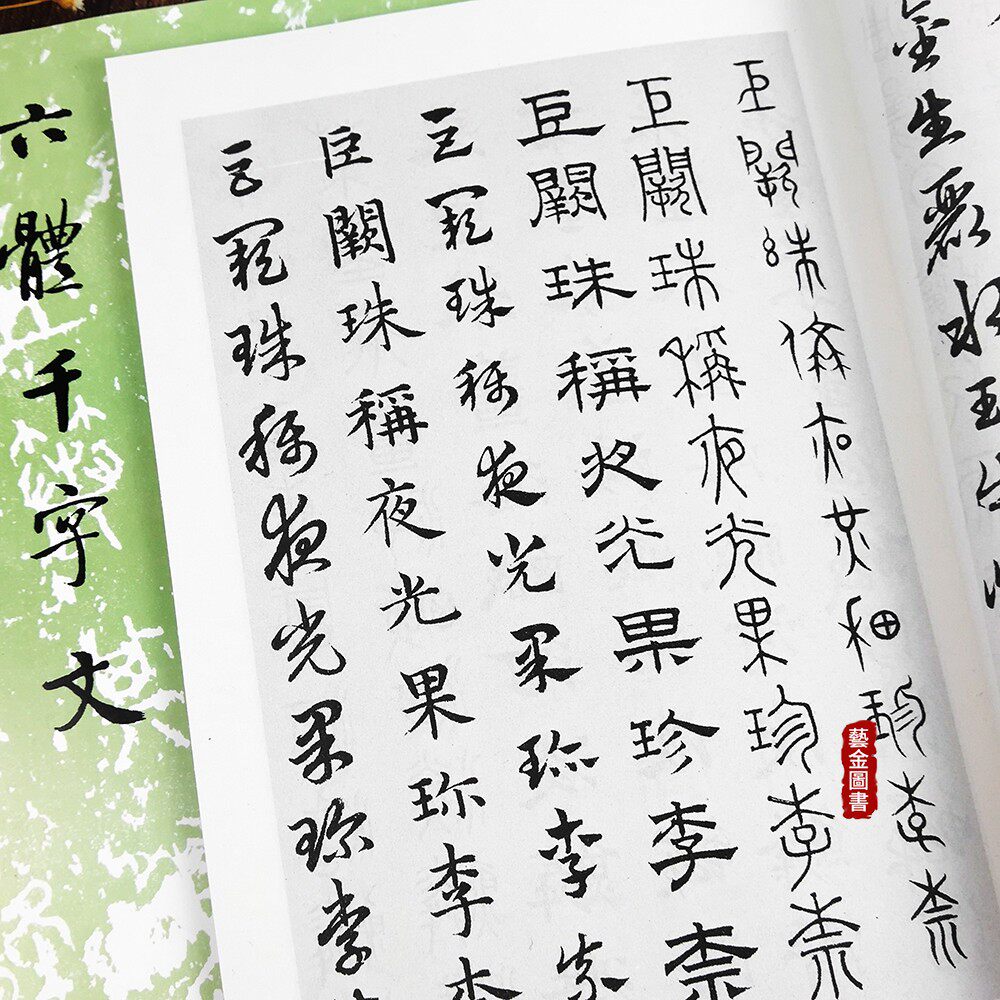 金生麗水玉出
巨闕珠稱夜光果珍李柰
巨闕珠稱夜光果珍李柰
巨闕珠稱夜光果珍李柰
巨闕珠稱夜光果珎李柰
巨闕珠稱夜光果珎李柰
巨闕珠稱夜光果珎李
六體千字文
藝金圖書